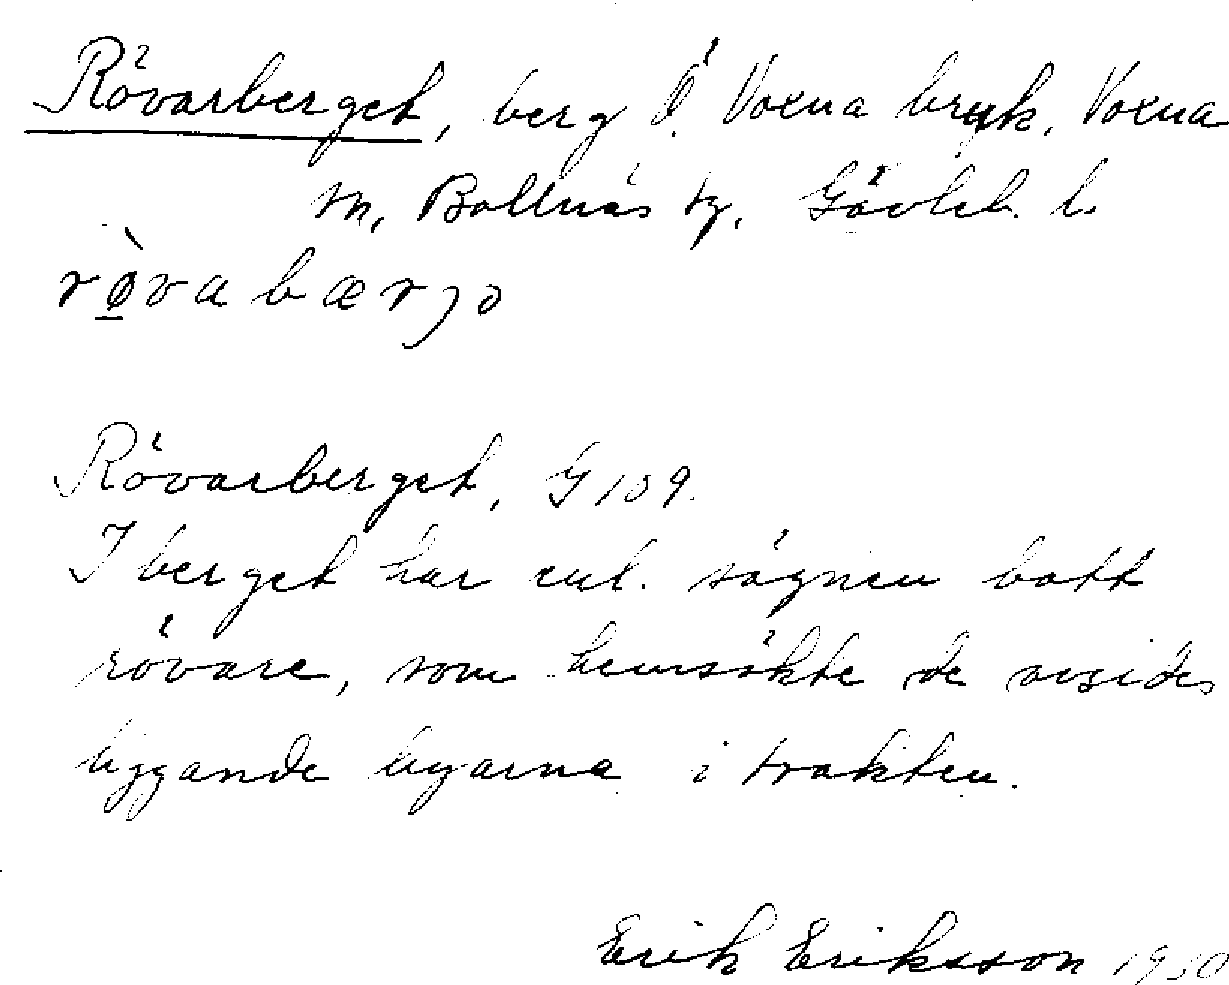 Rövarberget, berg Ö. Voxna bruk, Voxna
sn, Bollnäs tg, Gävleb. l.
rø̀vabærjə
Rövarberget, G 109.
I berget har enl. sägnen bott
rövare, som hemsökte de avsides
liggande byarna i trakten.
Erik Eriksson 1930